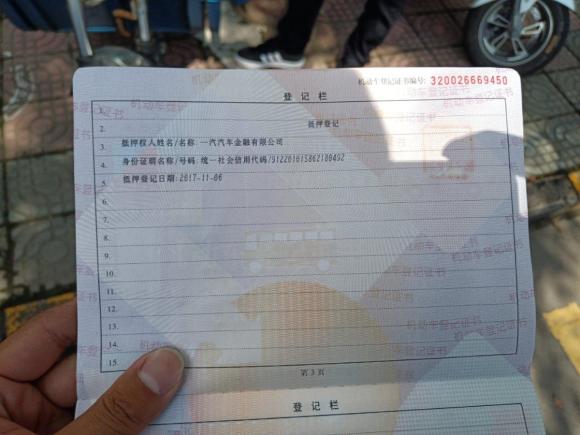 机动车登记证书编号: 320026669450
登记栏
1.
2. 抵押登记
3. 抵押权人姓名/名称: 一汽汽车金融有限公司
4. 身份证明名称/号码: 统一社会信用代码/912201015862180492
5. 抵押登记日期: 2017-11-06
6.
7.
8.
9.
10.
11.
12.
13.
14.
15.
第 3 页
登记栏